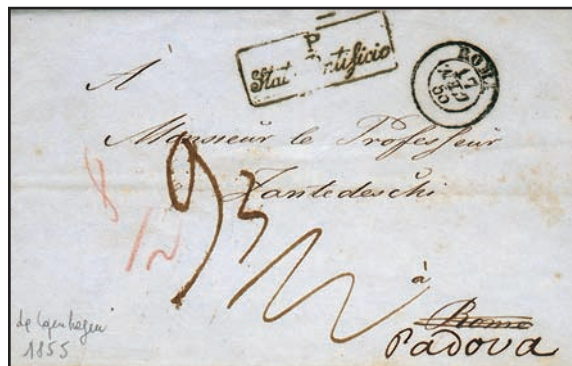 P
Stati Pontificio
ROMA
17
55
À
Monsieur le Professeur
Zantedeschi
à
Rome
Padova
8
12
93
de Copenhagen
1855